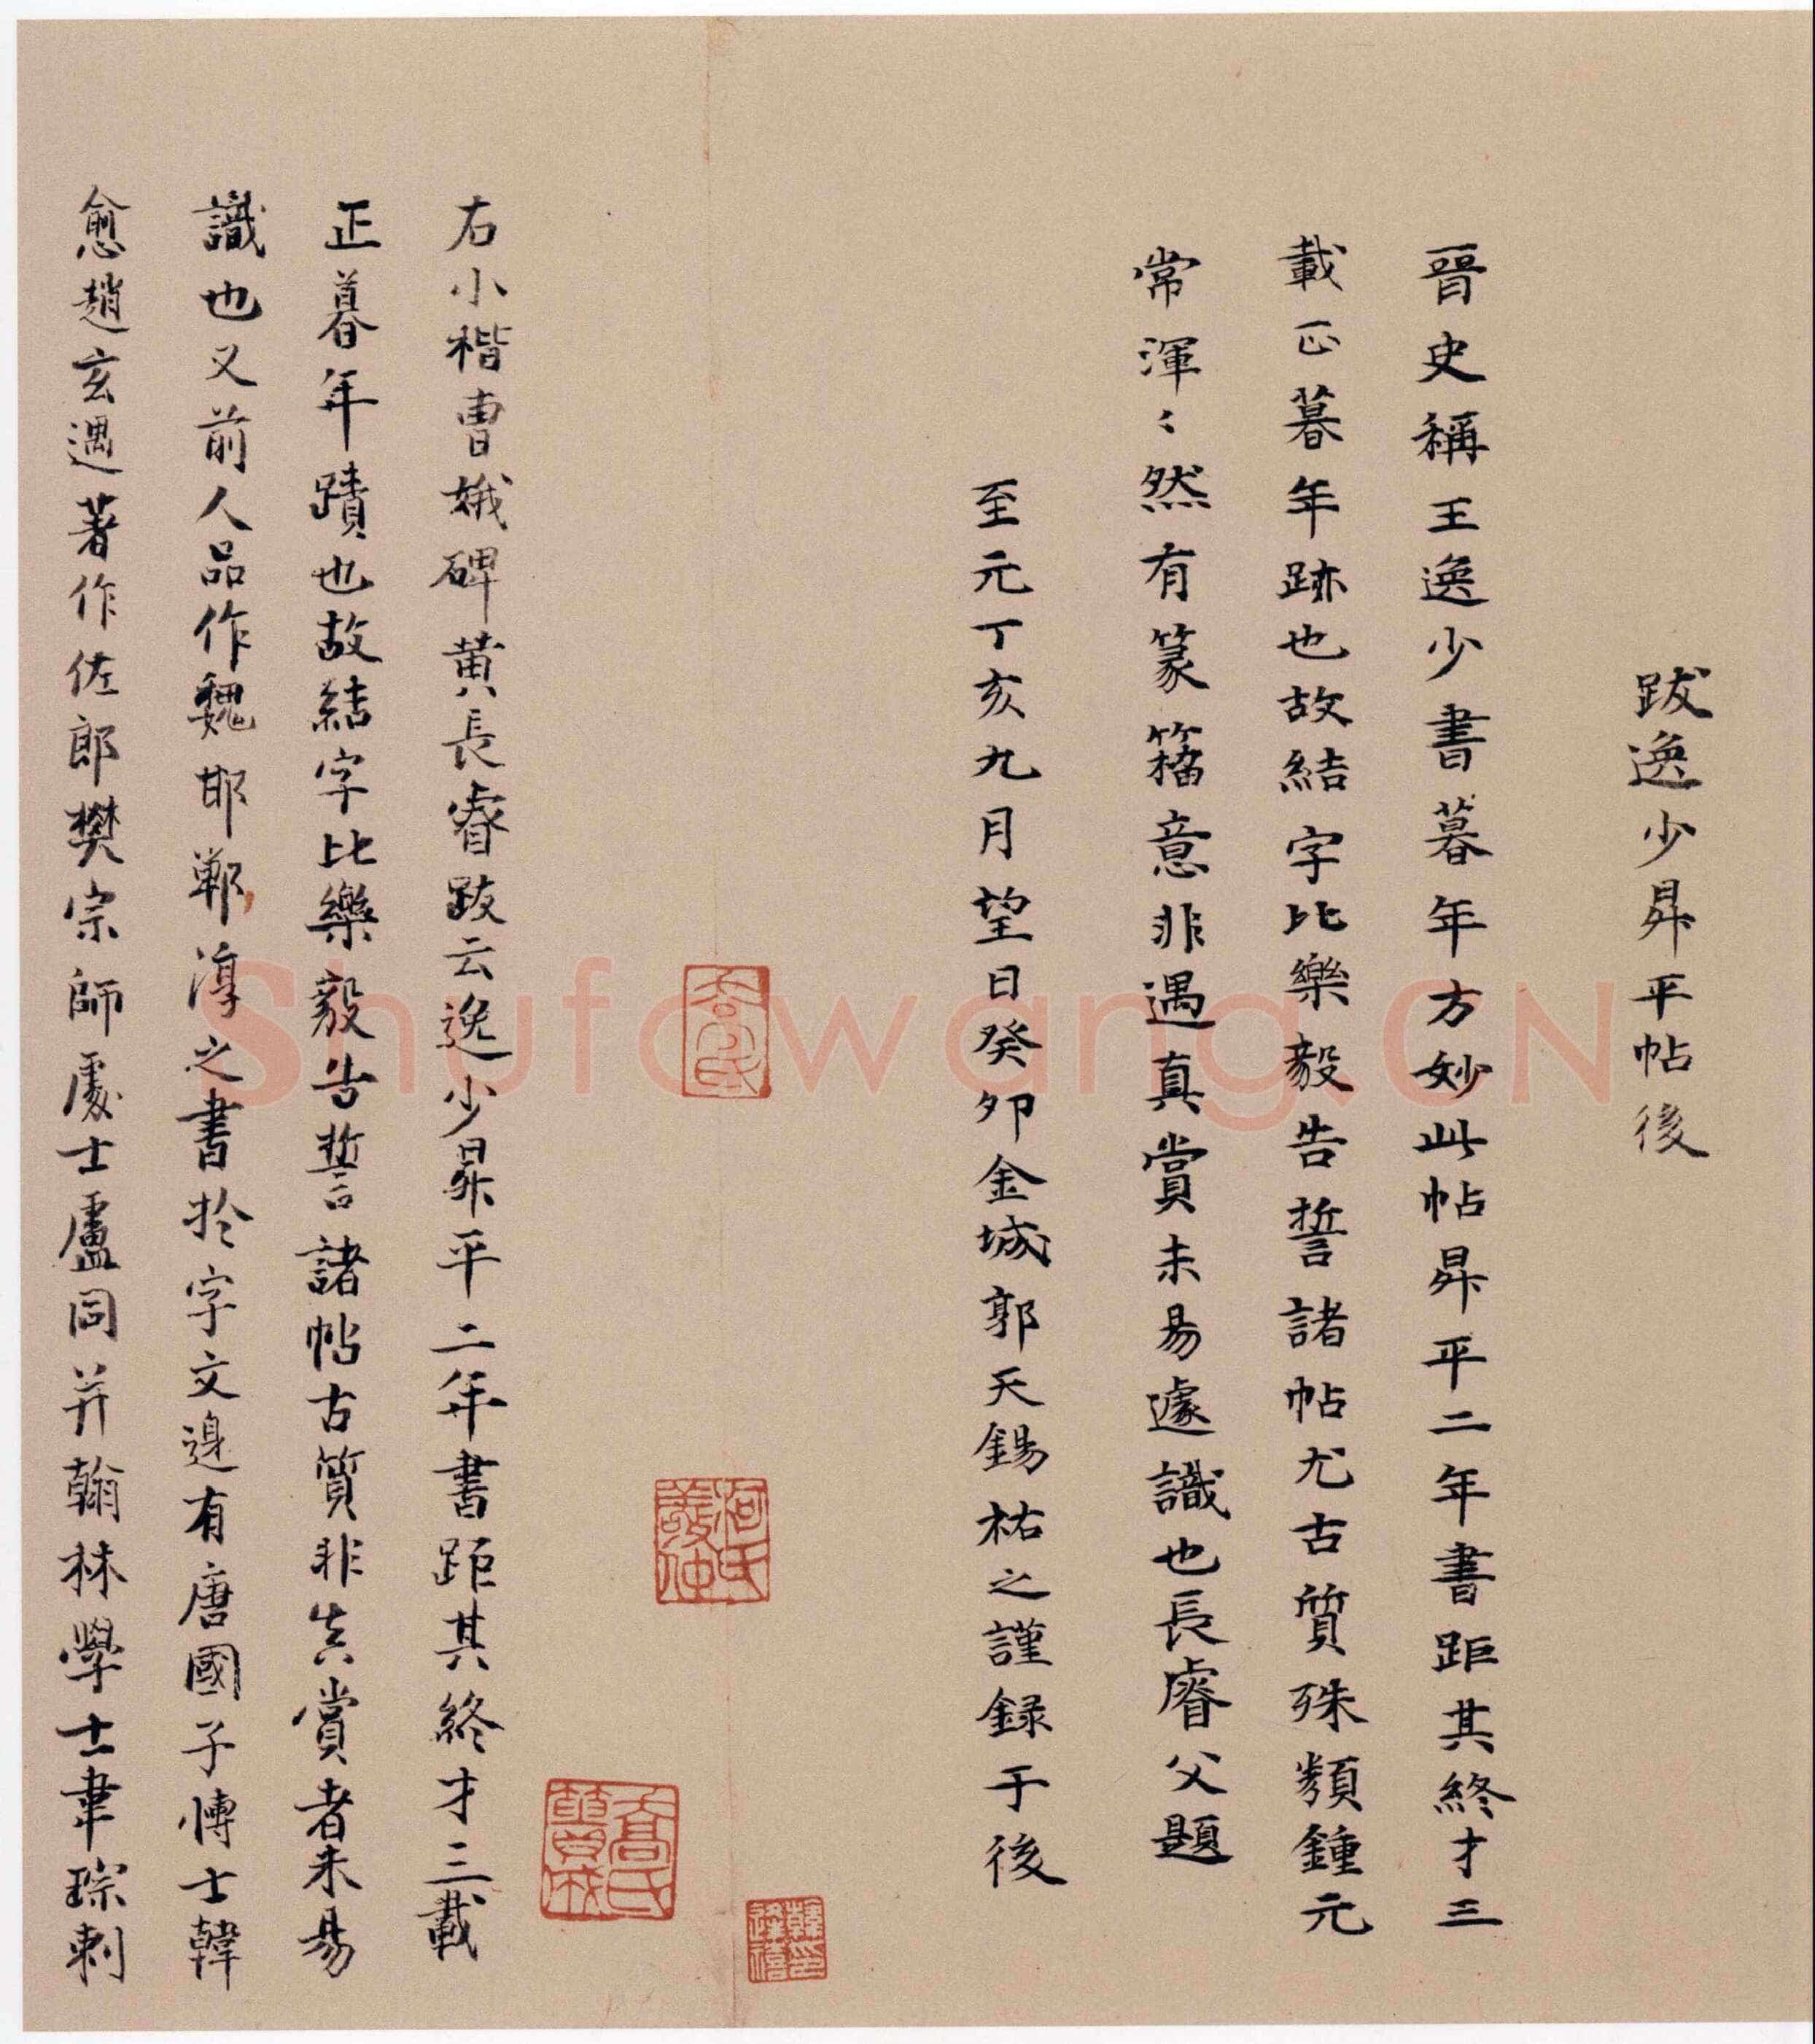 跋逸少昇平帖後
晉史稱王逸少書暮年方妙此帖昇平二年書距其終才三
載正暮年跡也故結字比樂毅告誓諸帖尤古質殊類鍾元
常渾〻然有篆籀意非遇真賞未易遽識也長睿父題
至元丁亥九月望日癸夘金城郭天錫祐之謹録于後
右小楷曹娥碑黄長睿跋云逸少昇平二年書距其終才三載
正暮年蹟也故結字比樂毅告誓諸帖古質非真賞者未易
識也又前人品作魏邯鄲淳之書扵字文邊有唐國子博士韓
愈趙玄遇著作佐郎樊宗師處士盧同并翰林學士韋琮刺
Shufawang.CN